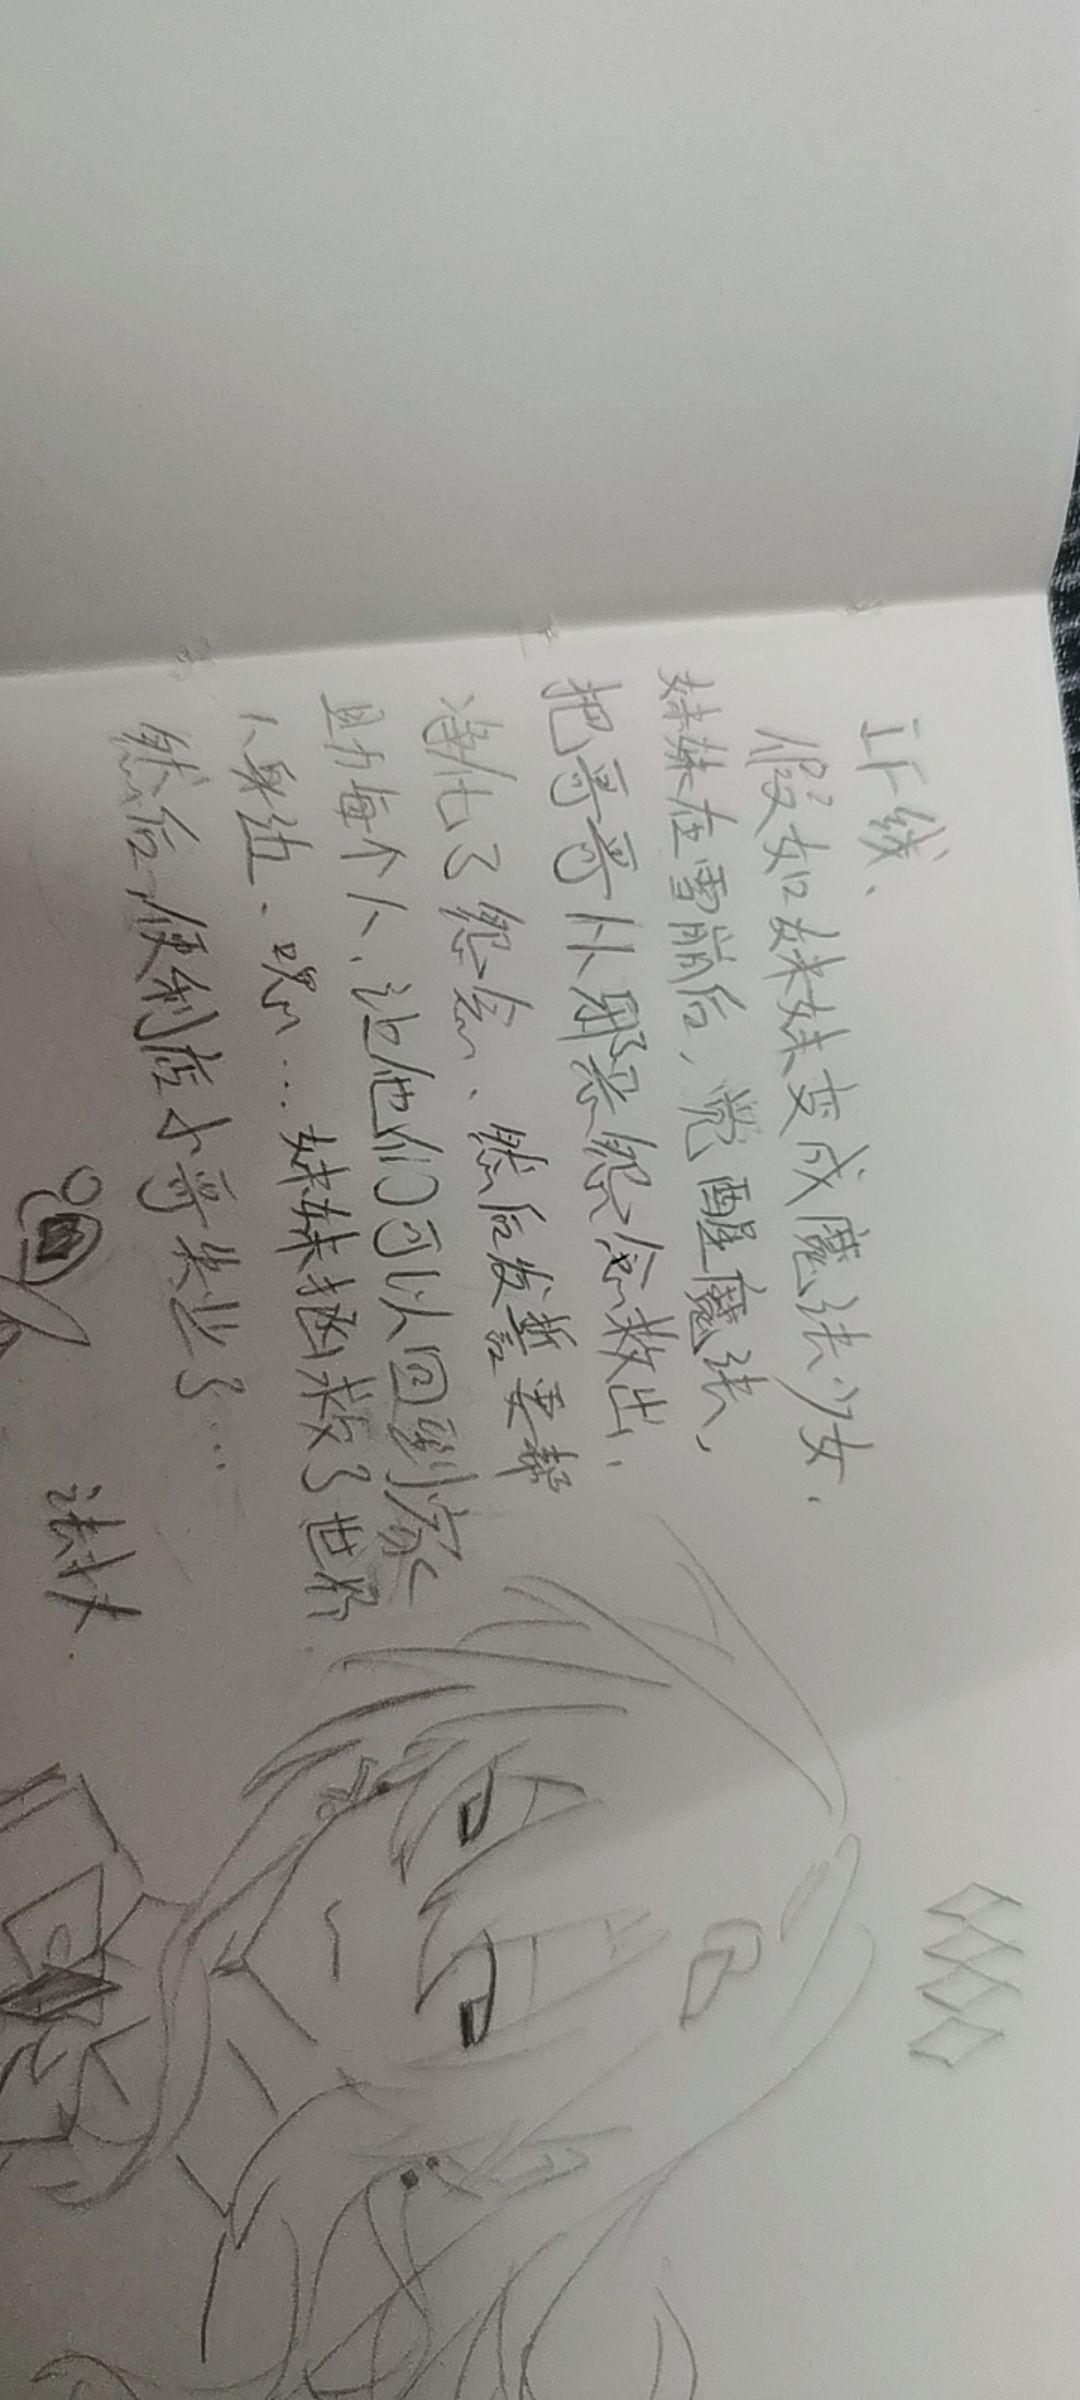 IF线、
假如妹妹变成魔法少女.
妹妹在雪崩后,觉醒魔法,
把哥哥从那朵怨念救出,
净化了怨念、然后发誓要帮
助每个人、让他们可以回到家
人身边、呃…妹妹拯救了世界
然后,便利店小哥失业了…
法杖